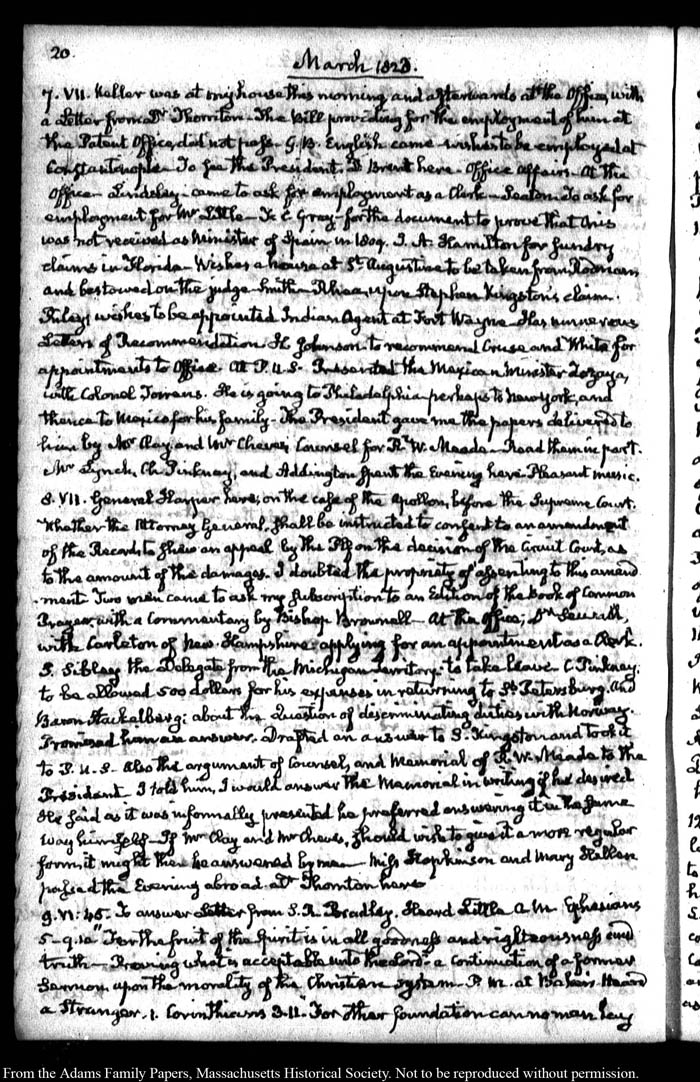 20.
March 1823.
7. VII. Keller was at my house this morning and afterwards at the Office, with
a Letter from Dr Thornton. The Bill providing for the employment of him at
the Patent Office, did not pass. G. B. English came. wishes to be employed at
Constantinople. To see the President. D Brent here. Office affairs. At the
Office. Lindsley. came to ask for employment as a Clerk. Seaton. To ask for
employment for Mr Little. F. C Gray. for the document to prove that Onis
was not received as Minister of Spain in 1809. J. A. Hamilton for sundry
claims in Florida. Wishes a house at St. Augustine to be taken from Rodman
and bestowed on the judge Smith. Rhea, upon Stephen Kingston's claim.
Riley, wishes to be appointed Indian Agent at Fort Wayne. Has numerous
Letters of Recommendation. H. Johnson to recommend Cruse and White for
appointments to Office. At P. U. S. Presented the Mexican Minister Zozaya,
with Colonel Torrens. He is going to Philadelphia perhaps to New York, and
thence to Mexico for his family. The President gave me the papers delivered to
him by Mr Clay and Mr Cheves, Counsel for Rd W. Meade. Read them in part.
Mr Lynch, Ch. Pinkney, and Addington spent the Evening here. Pleasant music.
8. VII. General Harper here; on the case of the Apollon, before the Supreme Court.
Whether the Attorney General, shall be instructed to consent to an amendment
of the Record, to shew an appeal by the Plf on the decision of the Circuit Court, as
to the amount of the damages. I doubted the propriety of assenting to this amend
ment. Two men came to ask my subscription to an Edition of the Book of Common
Prayer, with a Commentary by Bishop Brownell. At the Office; Dr Sewall,
with Carleton of New-Hampshire, applying for an appointment as a Clerk.
S. Sibley the Delegate from the Michigan Territory. to take leave. C. Pinkney.
to be allowed 500 dollars for his expenses in returning to St. Petersburg. And
Baron Stackelberg: about the Question of discriminating duties with Norway.
Promised him an answer. Drafted an answer to S. Kingston and took it
to P. U. S. Also the argument of Counsel, and Memorial of R. W. Meade to the
President. I told him, I would answer the Memorial in writing if he desired
He said as it was informally presented he preferred answering it in the same
way himself. If Mr Clay and Mr Cheves, should wish to give it a more regular
form, it might then be answered by me. Miss Hopkinson and Mary Hellen
passed the Evening abroad. Thornton here
9. VI: 45. To answer Letter from S. R. Bradley. Heard Little A. M. Ephesians
5-9.10." For the fruit of the Spirit is in all goodness and righteousness and
truth—Proving what is acceptable unto the Lord." a continuation of a former
Sermon upon the morality of the Christian system. P. M. at Baker's Heard
a Stranger. 1. Corinthians 3-11." For other foundation can no man lay
From the Adams Family Papers, Massachusetts Historical Society. Not to be reproduced without permission.